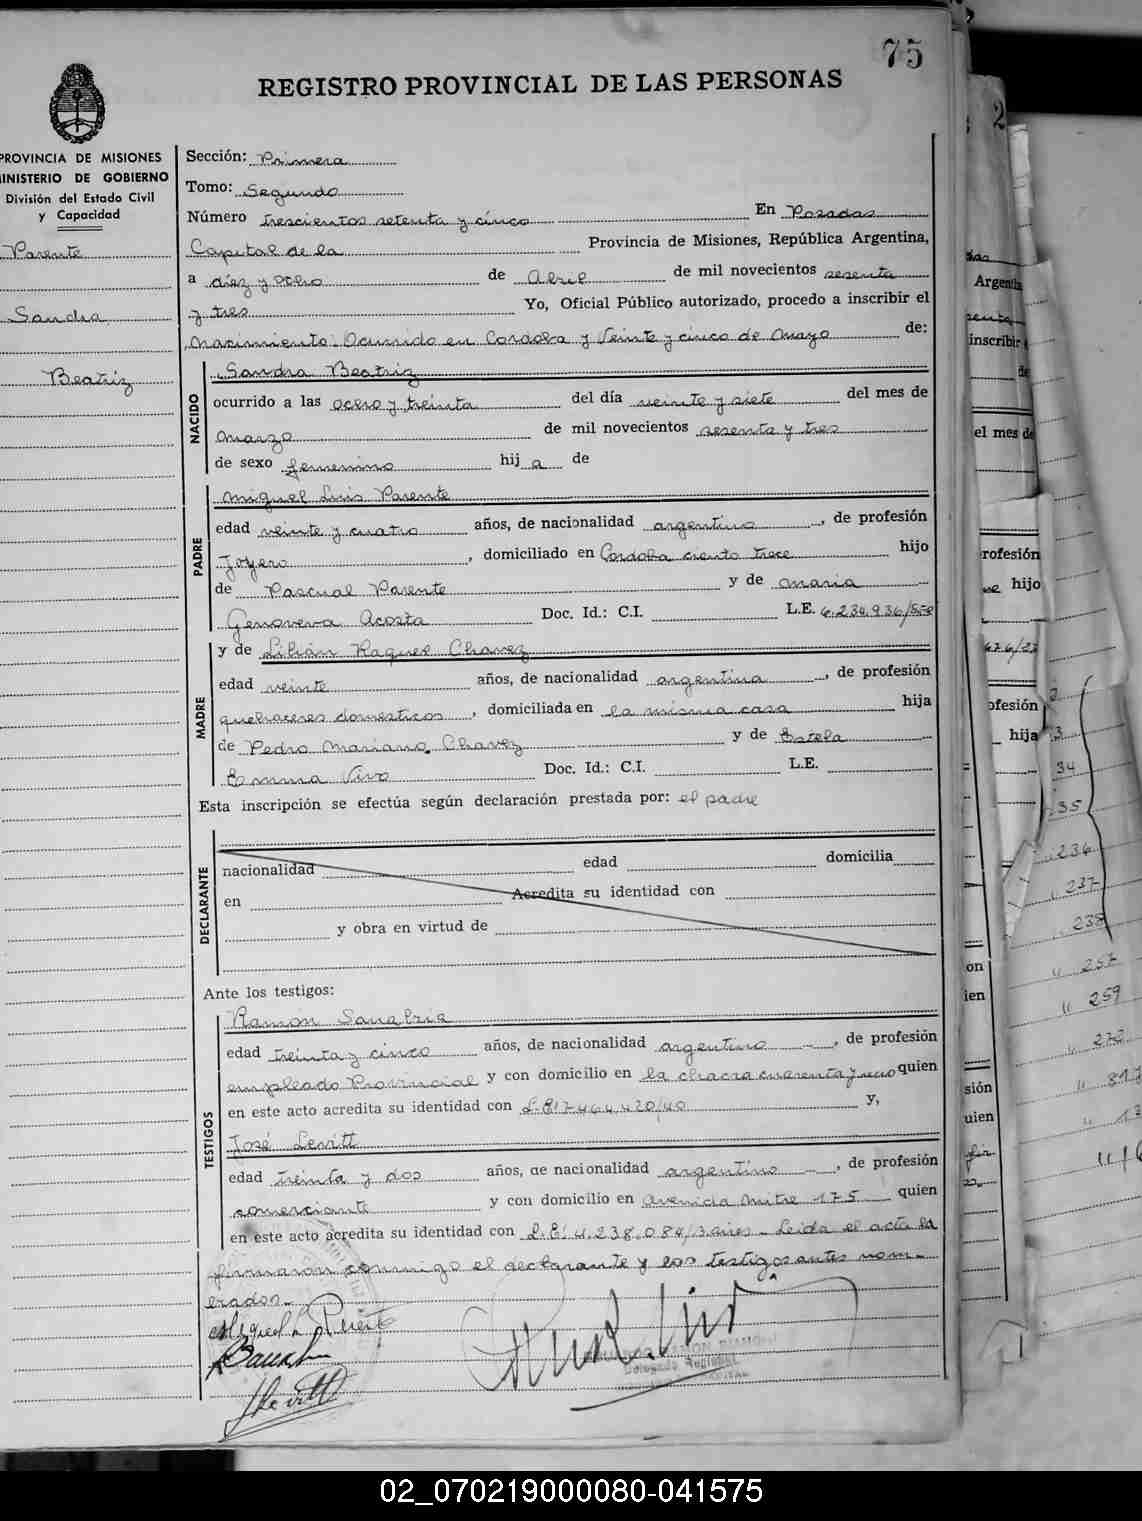 75
REGISTRO PROVINCIAL DE LAS PERSONAS
PROVINCIA DE MISIONES
MINISTERIO DE GOBIERNO
División del Estado Civil
y Capacidad
Parente
Sandra
Beatriz
Sección: Primera
Tomo: Segundo
Número trescientos setenta y cinco En Posadas
Capital de la Provincia de Misiones, República Argentina,
a diez y ocho de Abril de mil novecientos sesenta
y tres Yo, Oficial Público autorizado, procedo a inscribir el
Nacimiento. Ocurrido en Cordoba y Veinte y cinco de Mayo de:
NACIDO
Sandra Beatriz
ocurrido a las ocho y treinta del día veinte y siete del mes de
Marzo de mil novecientos sesenta y tres
de sexo femenino hij a de
PADRE
Miguel Luis Parente
edad veinte y cuatro años, de nacionalidad argentino, de profesión
Joyero, domiciliado en Cordoba ciento trece hijo
de Pascual Parente y de Maria
Genoveva Acosta Doc. Id.: C.I. L.E. 6.234.936/
MADRE
y de Lilián Raquel Chavez
edad veinte años, de nacionalidad argentina, de profesión
quehaceres domesticos, domiciliada en la misma casa hija
de Pedro Mariano Chavez y de Estela
Emma Vivo Doc. Id.: C.I. L.E.
Esta inscripción se efectúa según declaración prestada por: el padre
DECLARANTE
nacionalidad edad domicilia
en Acredita su identidad con
y obra en virtud de
Ante los testigos:
TESTIGOS
Ramón Sanabria
edad treinta y cinco años, de nacionalidad argentino, de profesión
empleado Provincial y con domicilio en la chacra cuarenta y uno quien
en este acto acredita su identidad con L.E: 7.464.420/40 y,
José Levitt
edad treinta y dos años, de nacionalidad argentino, de profesión
comerciante y con domicilio en Avenida Mitre 175 quien
en este acto acredita su identidad con L.E: 4.238.084/ Leida el acta la
firmaron conmigo el declarante y los testigos antes nom-
erados.
Miguel L. Parente
Levitt
Delegado Regional
2
Argentin
inscribir
de
el mes de
rofesión
hijo
ofesión
hija
34
35
236
237
238
" 257
" 259
on
ien
sión
uien
02_070219000080-041575